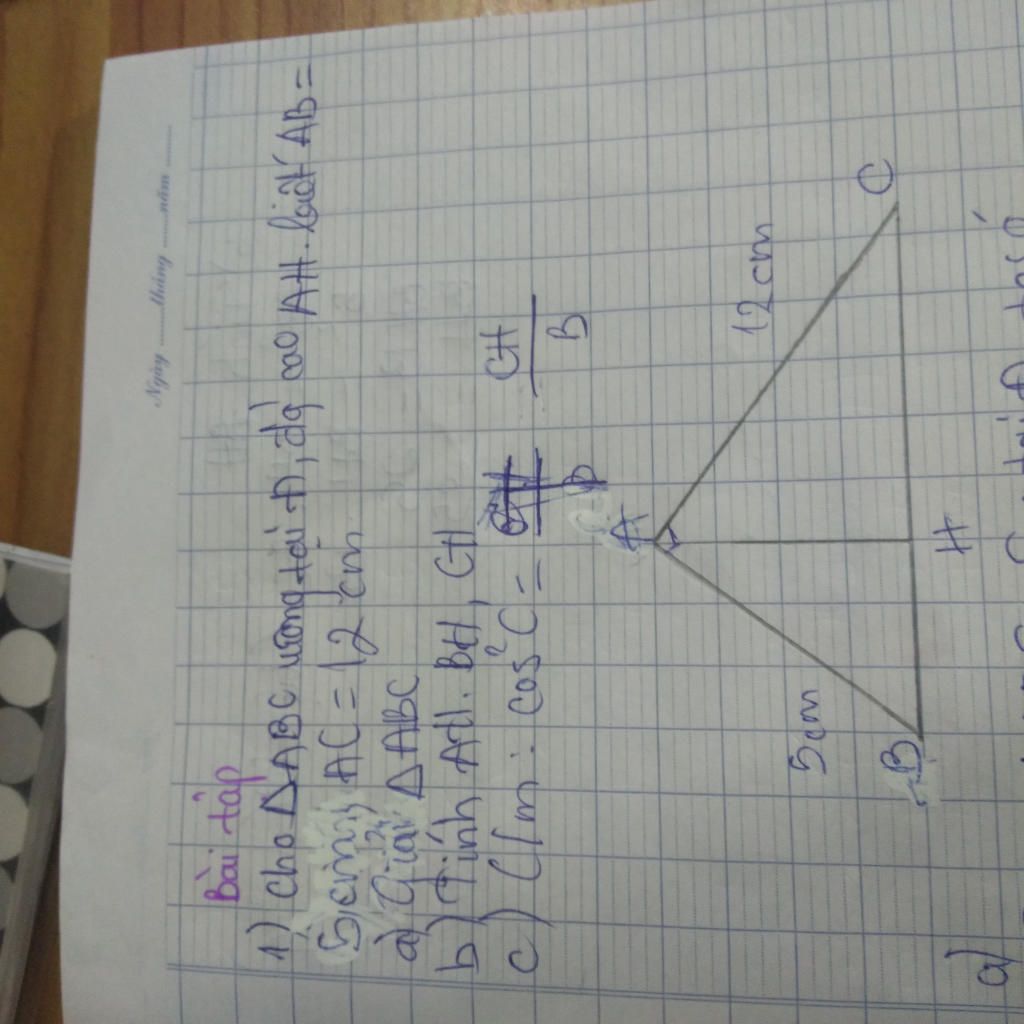 Ngày ........ tháng ........ năm ........
Bài tập
1) Cho ΔABC vuông tại A, đg cao AH. biết AB =
5cm, AC = 12 cm
a) Giải ΔABC
b) Tính AH. BH, CH
c) C/m: cos²C = CH/B
A
5cm
12cm
B
H
C
a)